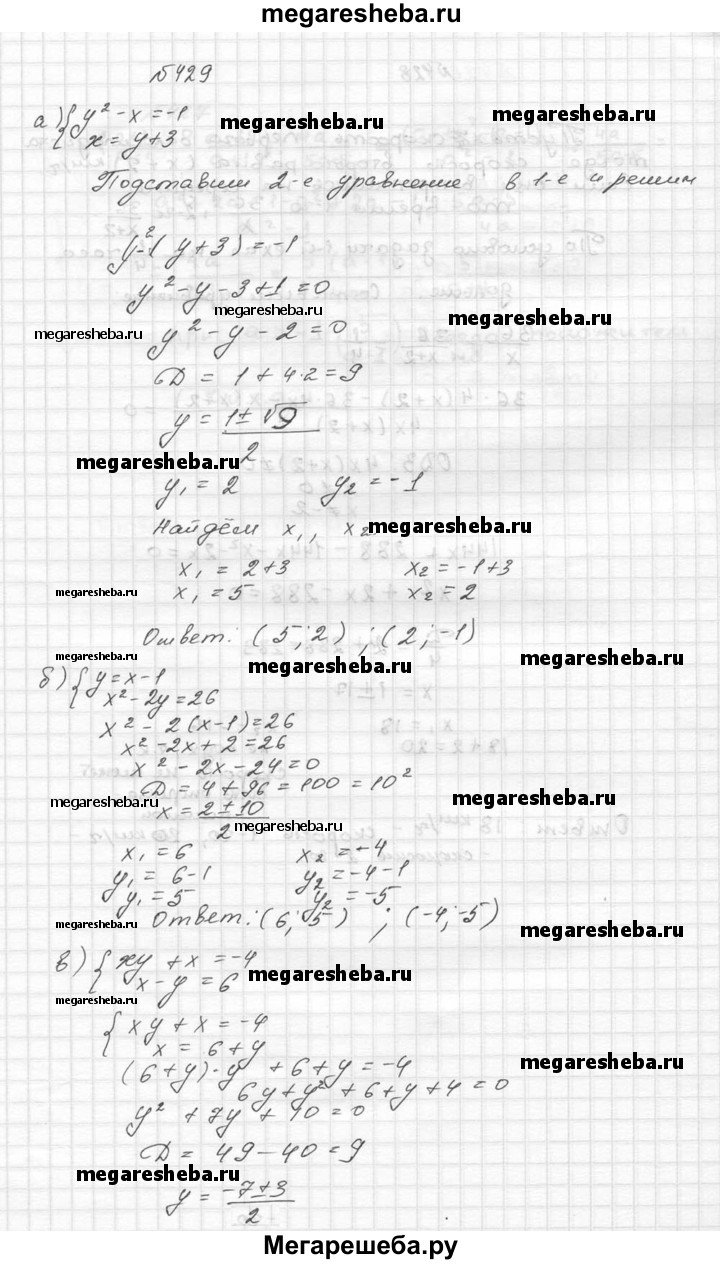 megaresheba.ru
№429
а) { y² - x = -1
x = y+3
megaresheba.ru
Подставим 2-е уравнение в 1-е и решим
y² - 1( y+3) = -1
y² - y - 3 + 1 = 0
megaresheba.ru
y² - y - 2 = 0
megaresheba.ru
D = 1 + 4·2 = 9
y = (1 ± √9) / 2
megaresheba.ru
y₁ = 2 y₂ = -1
Найдём x₁, x₂
megaresheba.ru
x₁ = 2+3 x₂ = -1+3
megaresheba.ru
x₁ = 5 x₂ = 2
Ответ: (5; 2) ; (2; -1)
megaresheba.ru
megaresheba.ru
megaresheba.ru
б) { y = x-1
x² - 2y = 26
x² - 2(x-1) = 26
x² - 2x + 2 = 26
x² - 2x - 24 = 0
D = 4 + 96 = 100 = 10²
megaresheba.ru
megaresheba.ru
x = (2 ± 10) / 2
megaresheba.ru
x₁ = 6 x₂ = -4
y₁ = 6-1 y₂ = -4-1
y₁ = 5 y₂ = -5
Ответ: (6; 5) ; (-4; -5)
megaresheba.ru
megaresheba.ru
в) { xy + x = -4
x - y = 6
megaresheba.ru
megaresheba.ru
{ xy + x = -4
x = 6 + y
(6+y)·y + 6 + y = -4
megaresheba.ru
6y + y² + 6 + y + 4 = 0
y² + 7y + 10 = 0
D = 49 - 40 = 9
megaresheba.ru
y = (-7 ± 3) / 2
Мегарешеба.ру